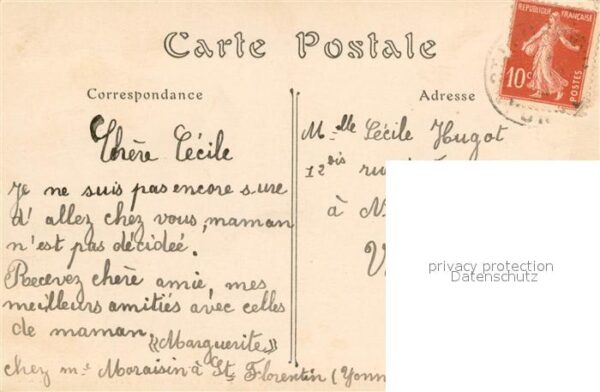 Carte Postale
RÉPUBLIQUE FRANÇAISE
10c
POSTES
Correspondance
Adresse
Chère Cécile
Je ne suis pas encore sure
d'allez chez vous, maman
n'est pas décideé.
Recevez chère amie, mes
meilleurs amitiés avec celles
de maman
«Marguerite»
chez me Moraisin à St Florentin (Yonn
Melle Cécile Hugot
12 bis
à
privacy protection
Datenschutz